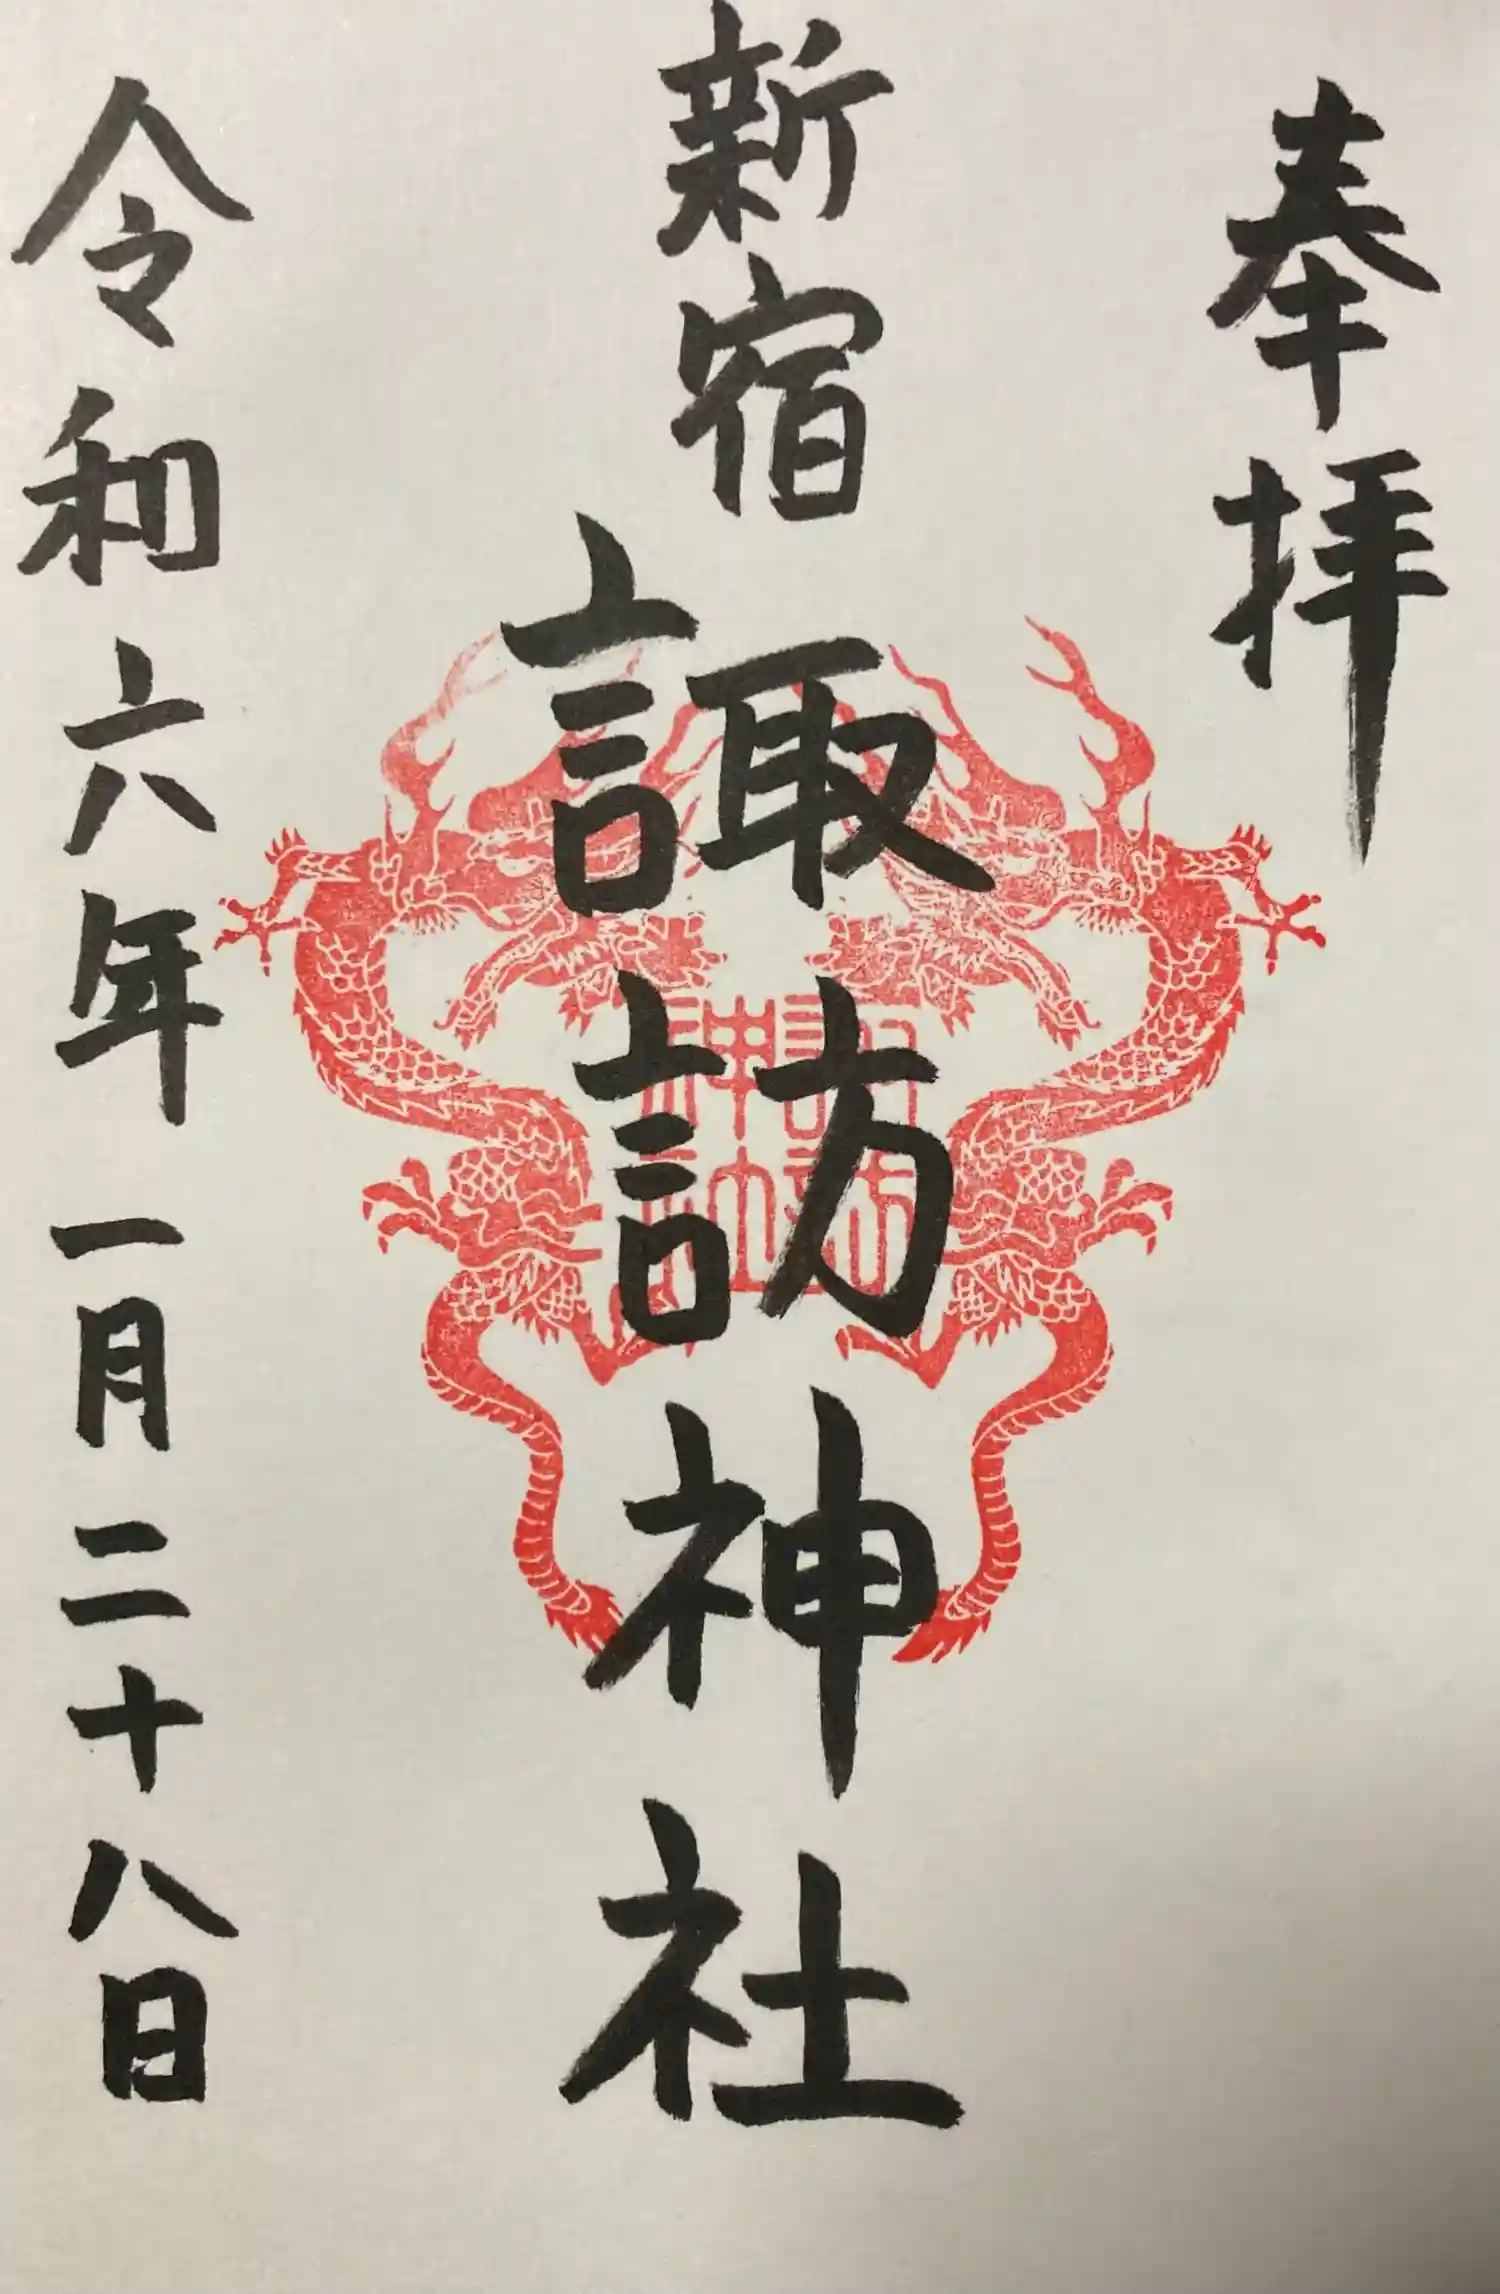 奉拝
新宿
諏訪神社
諏訪
神社
令和六年一月二十八日